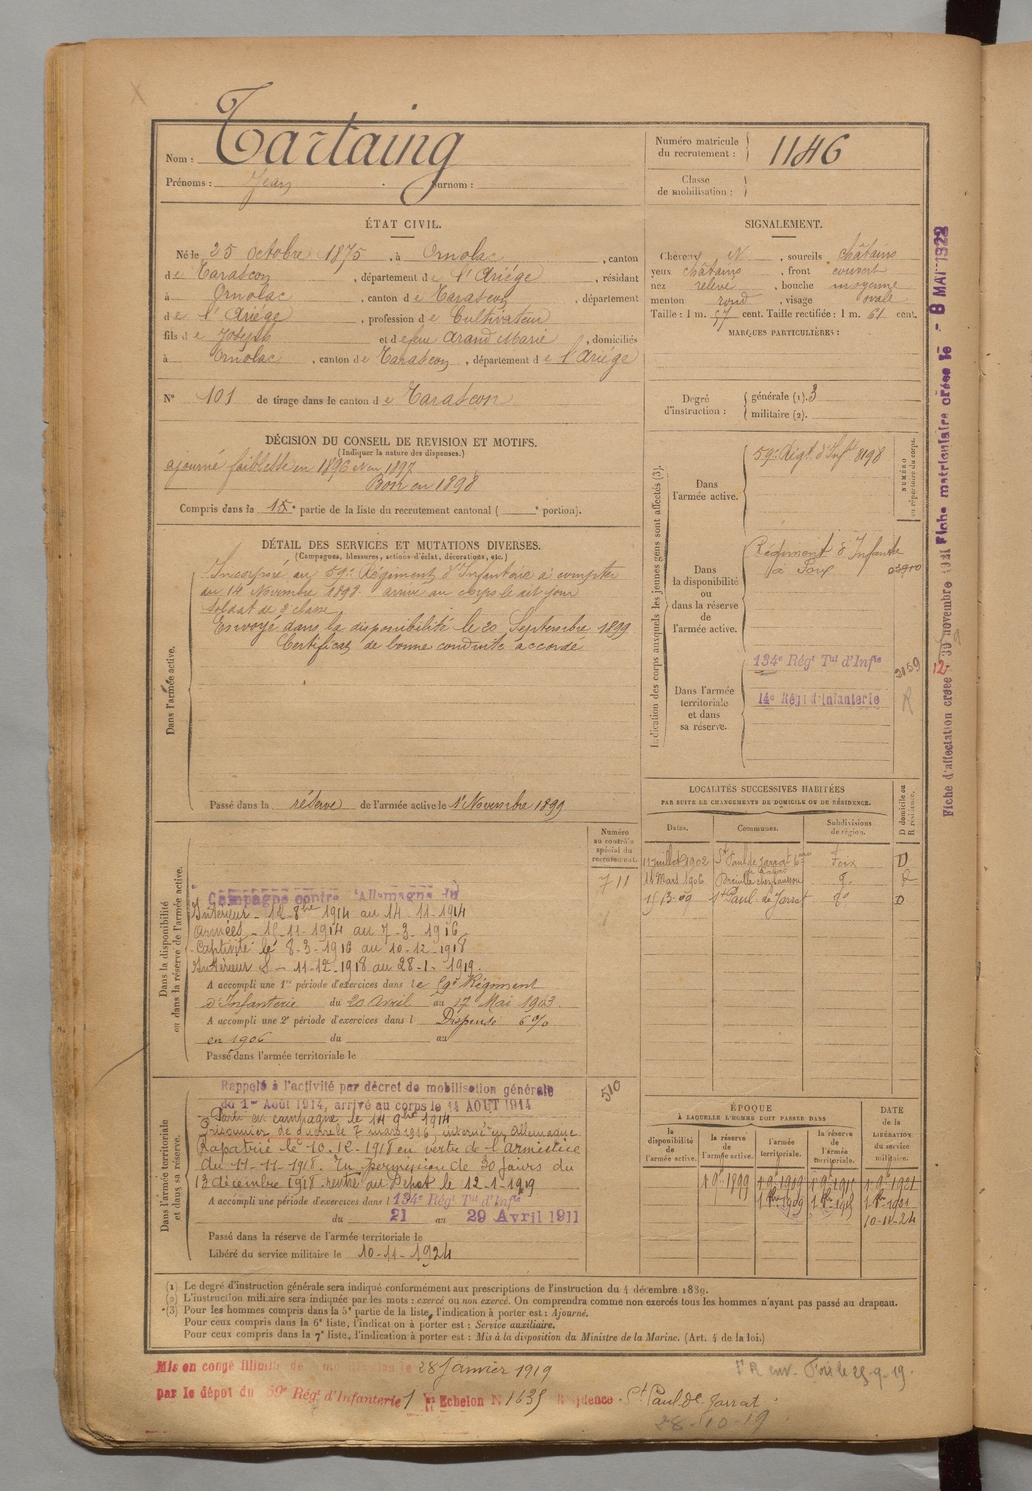 Nom : Tartaing
Prénoms : Jean surnom :
Numéro matricule du recrutement : 1146
Classe de mobilisation :
ÉTAT CIVIL.
Né le 25 octobre 1875, à Ornolac, canton
de Tarascon, département de l'Ariége, résidant
à Ornolac, canton de Tarascon, département
de l'Ariége, profession de Cultivateur
fils de Joseph et de feue Arand Marie, domiciliés
à Ornolac, canton de Tarascon, département de l'Ariége
N° 101 de tirage dans le canton de Tarascon
SIGNALEMENT.
Cheveux N, sourcils châtains
yeux châtains, front couvert
nez relevé, bouche moyenne
menton rond, visage ovale
Taille : 1 m. 57 cent. Taille rectifiée : 1 m. 61 cent.
MARQUES PARTICULIÈRES :
Degré d'instruction : générale (1). 3
militaire (2).
DÉCISION DU CONSEIL DE REVISION ET MOTIFS.
(Indiquer la nature des dispenses.)
ajourné faiblesse en 1896 et en 1897
Bon en 1898
Compris dans la partie de la liste du recrutement cantonal ( portion).
DÉTAIL DES SERVICES ET MUTATIONS DIVERSES.
(Campagnes, blessures, actions d'éclat, décorations, etc.)
Dans l'armée active.
Incorporé au 59e Régiment d'Infanterie à compter
du 14 Novembre 1898 arrivé au corps le dit jour
Soldat de 2e classe
Envoyé dans la disponibilité le 20 Septembre 1899
Certificat de bonne conduite accordé
Passé dans la réserve de l'armée active le 1er Novembre 1899
Indication des corps auxquels les jeunes gens sont affectés (3).
Dans l'armée active.
59e Régt d'Inft 8198
NUMÉRO au répertoire du corps.
Dans la disponibilité ou dans la réserve de l'armée active.
Régiment d'Infante
à Foix
Dans l'armée territoriale et dans sa réserve.
134e Régt Tal d'Infie 2159
14e Régt d'Infanterie
LOCALITÉS SUCCESSIVES HABITÉES
PAR SUITE DE CHANGEMENTS DE DOMICILE OU DE RÉSIDENCE.
Dates. Communes. Subdivisions de région. D domicile ou R résidence.
Juillet 1902 St Paul de Jarrat Foix D
11 Mars 1906 R
St Paul de Jarrat do D
Numéro au contrôle spécial du recrutement.
711
Dans la disponibilité ou dans la réserve de l'armée active.
Campagne contre l'Allemagne du
Intérieur - 12-8bre 1914 au 14-11-1914
Armées - 15-11-1914 au 7-3-1916
Captivité le 8-3-1916 au 10-12-1918
Intérieur S - 11-12-1918 au 28-1-1919.
A accompli une 1re période d'exercices dans le 59e Régiment
d'Infanterie du 20 Avril au 17 Mai 1903.
A accompli une 2e période d'exercices dans l Dispensé 6%
en 1906 du au
Passé dans l'armée territoriale le
Dans l'armée territoriale et dans sa réserve.
510
Rappelé à l'activité par décret de mobilisation générale
du 1er Août 1914, arrivé au corps le 14 AOUT 1914
Parti en campagne le 14 9bre 1914
Prisonnier de guerre le 7 mars 1916, interné en Allemagne
Rapatrié le 10-12-1918 en vertu de l'Armistice
du 11-11-1918. En permission de 30 jours du
13 décembre 1918 rentré au Dépôt le 12-1-1919
A accompli une période d'exercices dans l 134e Régt Tal d'Infie
du 21 au 29 Avril 1911
Passé dans la réserve de l'armée territoriale le
Libéré du service militaire le 10-11-1924
ÉPOQUE
À LAQUELLE L'HOMME DOIT PASSER DANS
la disponibilité de l'armée active. la réserve de l'armée active. l'armée territoriale. la réserve de l'armée territoriale. DATE de la LIBÉRATION du service militaire.
1 9e 1899
10-11-24
(1) Le degré d'instruction générale sera indiqué conformément aux prescriptions de l'instruction du 4 décembre 1889.
(2) L'instruction militaire sera indiquée par les mots : exercé ou non exercé. On comprendra comme non exercés tous les hommes n'ayant pas passé au drapeau.
(3) Pour les hommes compris dans la 5e partie de la liste, l'indication à porter est : Ajourné.
Pour ceux compris dans la 6e liste, l'indication à porter est : Service auxiliaire.
Pour ceux compris dans la 7e liste, l'indication à porter est : Mis à la disposition du Ministre de la Marine. (Art. 4 de la loi.)
Mis en congé illimité de le 28 Janvier 1919
par le dépôt du 59e Régt d'Infanterie Echelon N 1635 Résidence St Paul de Jarrat
28-10-19
Fiche d'affectation créée 30 novembre Fiche matriculaire créée le - 8 MAI 1922